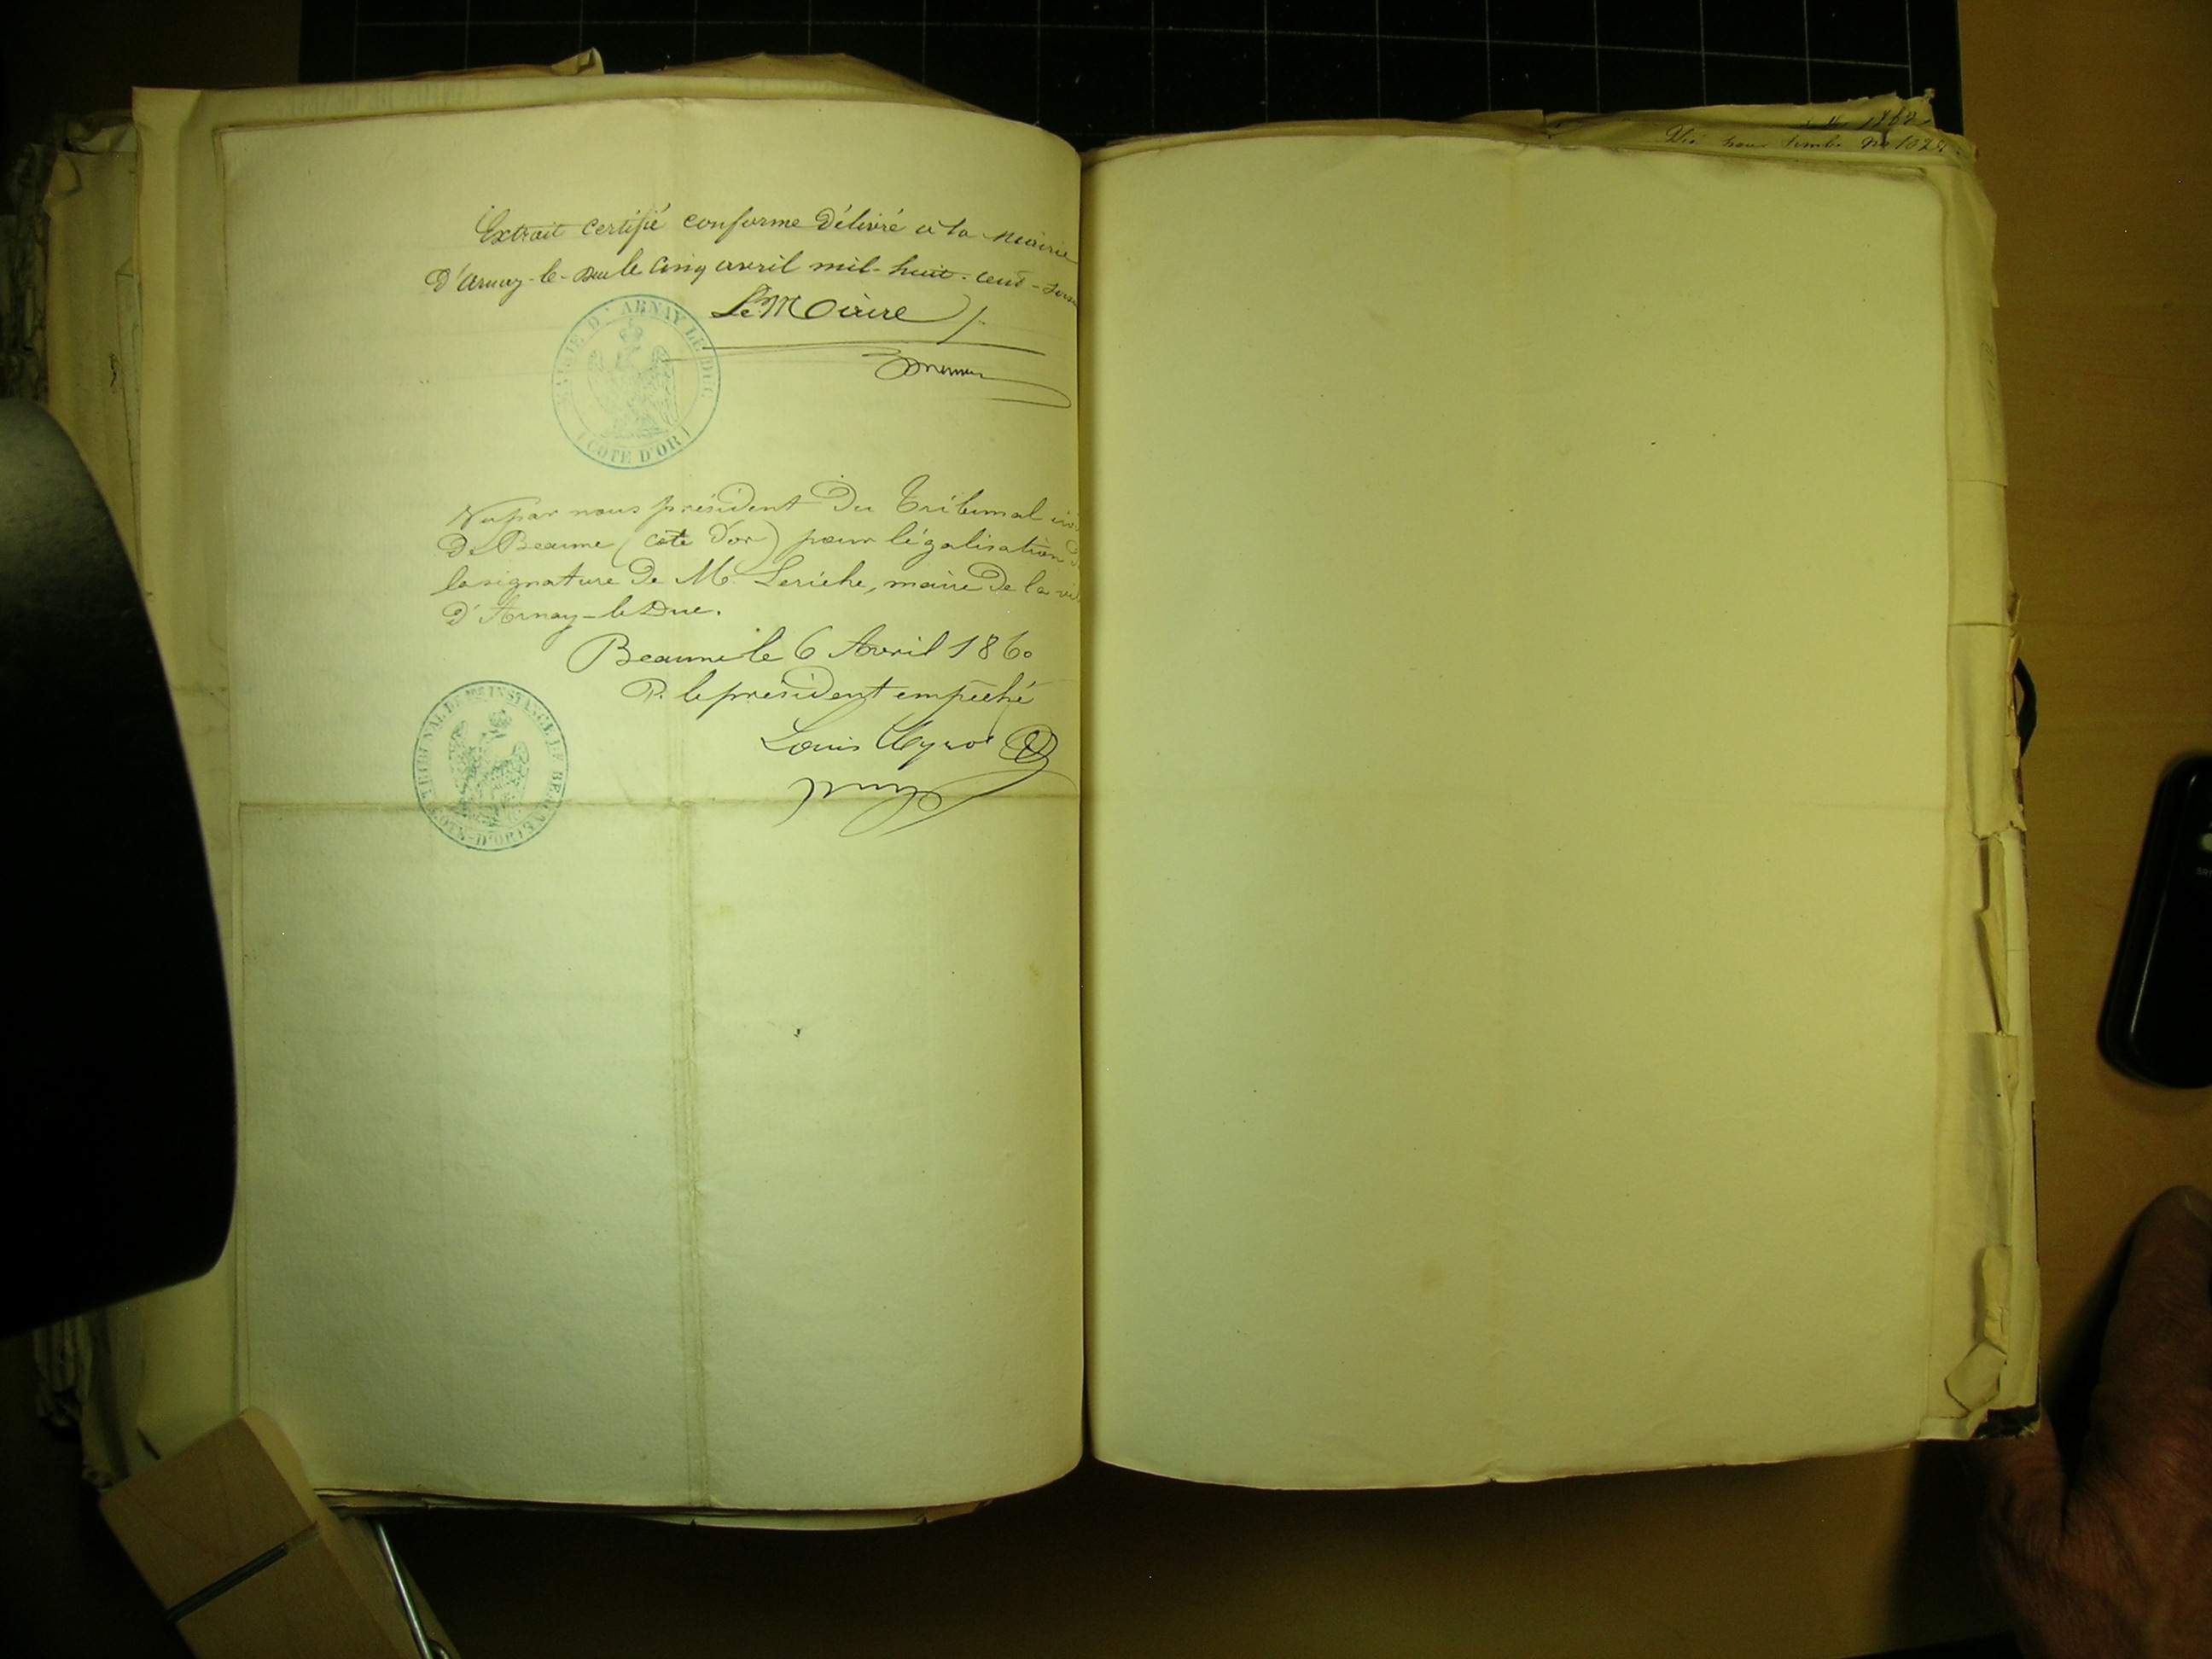 Extrait certifié conforme Délivré à la Mairie
D'Arnay-le-Duc le Cinq avril mil-huit-cent-
Le Maire
MAIRIE D'ARNAY LE DUC
(COTE D'OR)
Vu par nous président Du Tribunal
De Beaune (côte D'or) pour légalisation
la signature De M. Leriche, maire De la
D'Arnay-le Duc.
Beaune le 6 Avril 1860
P. le président empêché
Louis
TRIBUNAL DE 1ère INSTANCE DE BEAUNE
(COTE-D'OR)
1862
timbre No